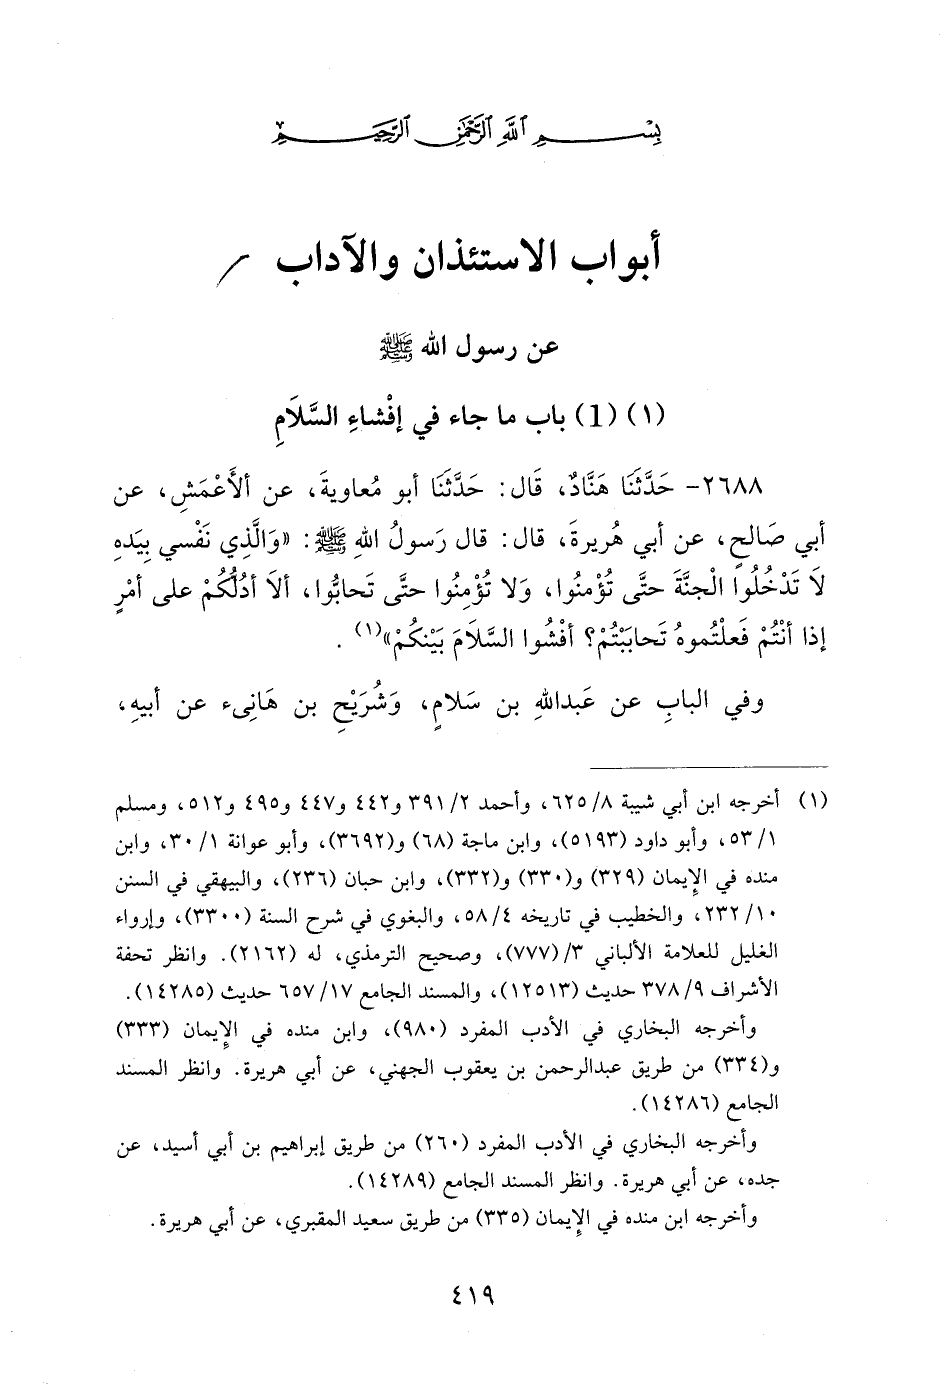 بِسْمِ اللَّهِ الرَّحْمَٰنِ الرَّحِيمِ
أبواب الاستئذان والآداب
عن رسول الله ﷺ
(١) (1) باب ما جاء في إفْشاءِ السَّلاَمِ
٢٦٨٨- حَدَّثَنَا هَنَّادٌ، قَال: حَدَّثَنَا أبو مُعاويةَ، عن ألأَعْمَشِ، عن
أبي صَالحٍ، عن أبي هُريرةَ، قال: قال رَسولُ اللهِ ﷺ: «وَالَّذِي نَفْسي بِيَدِهِ
لاَ تَدْخُلُوا الْجنَّةَ حتَّى تُؤْمنُوا، وَلا تُؤْمِنُوا حتَّى تَحابُّوا، ألاَ أدُلُّكُمْ على أمْرٍ
إذا أنْتُمْ فَعلْتُموهُ تَحابَبْتُمْ؟ أفْشُوا السَّلاَمَ بَيْنكُمْ»(١).
وفي البابِ عن عَبداللهِ بن سَلامٍ، وَشُرَيْحِ بن هَانِىء عن أبيهِ،
(١) أخرجه ابن أبي شيبة ٨/ ٦٢٥، وأحمد ٢/ ٣٩١ و٤٤٢ و٤٤٧ و٤٩٥ و٥١٢، ومسلم
١/ ٥٣، وأبو داود (٥١٩٣)، وابن ماجة (٦٨) و(٣٦٩٢)، وأبو عوانة ١/ ٣٠، وابن
منده في الإيمان (٣٢٩) و(٣٣٠) و(٣٣٢)، وابن حبان (٢٣٦)، والبيهقي في السنن
١٠/ ٢٣٢، والخطيب في تاريخه ٤/ ٥٨، والبغوي في شرح السنة (٣٣٠٠)، وإرواء
الغليل للعلامة الألباني ٣/ (٧٧٧)، وصحيح الترمذي، له (٢١٦٢). وانظر تحفة
الأشراف ٩/ ٣٧٨ حديث (١٢٥١٣)، والمسند الجامع ١٧/ ٦٥٧ حديث (١٤٢٨٥).
وأخرجه البخاري في الأدب المفرد (٩٨٠)، وابن منده في الإيمان (٣٣٣)
و(٣٣٤) من طريق عبدالرحمن بن يعقوب الجهني، عن أبي هريرة. وانظر المسند
الجامع (١٤٢٨٦).
وأخرجه البخاري في الأدب المفرد (٢٦٠) من طريق إبراهيم بن أبي أسيد، عن
جده، عن أبي هريرة. وانظر المسند الجامع (١٤٢٨٩).
وأخرجه ابن منده في الإيمان (٣٣٥) من طريق سعيد المقبري، عن أبي هريرة.
٤١٩